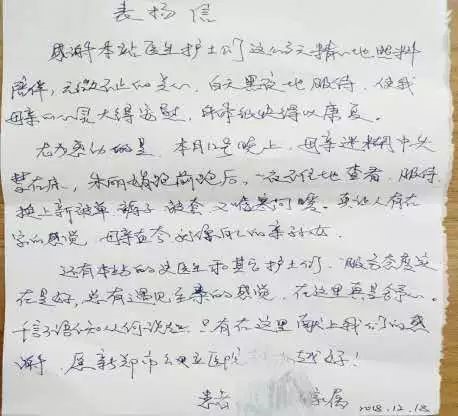 表扬信
感谢本站医生护士们这么多天精心地照料
陪伴，无微不至的关心，白天黑夜地服侍，使我
母亲的心灵大得安慰，身体很快得以康复。
尤为感动的是，本月12号晚上，母亲迷糊中头
在床，朱丽娟跑前跑后，一夜不住地查看，服侍
换上新被单 褥子 被套 又嘘寒问暖。真让人有在
家的感觉，母亲至今的亲子女。
还有本站的史医生和其它护士们，服务态度实
在是好，总有遇见至亲的感觉，在这里真是舒心。
千言万语不知从何说起，只有在这里献上我们的感
谢，愿新郑市公立医院越好！
患者 家属
2018.12.18